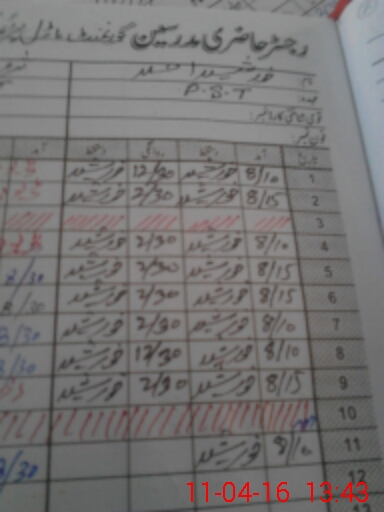 رجسٹر حاضری مدرسین گورنمنٹ ماڈل
نام: خورشید احمد
عہدہ: P.S.T
قومی شناختی کارڈ نمبر:
فون نمبر:
تاریخ آمد دستخط روانگی دستخط آمد
1 8/10 خورشید 12/30 خورشید
2 8/15 خورشید 2/30 خورشید
3
4 8/10 خورشید 2/30 خورشید
5 8/15 خورشید 2/30 خورشید
6 8/15 خورشید 2/30 خورشید
7 8/10 خورشید 2/30 خورشید
8 8/10 خورشید 12/30 خورشید
9 8/15 خورشید 2/30 خورشید
10
11 8/10 خورشید
12
11-04-16 13:43